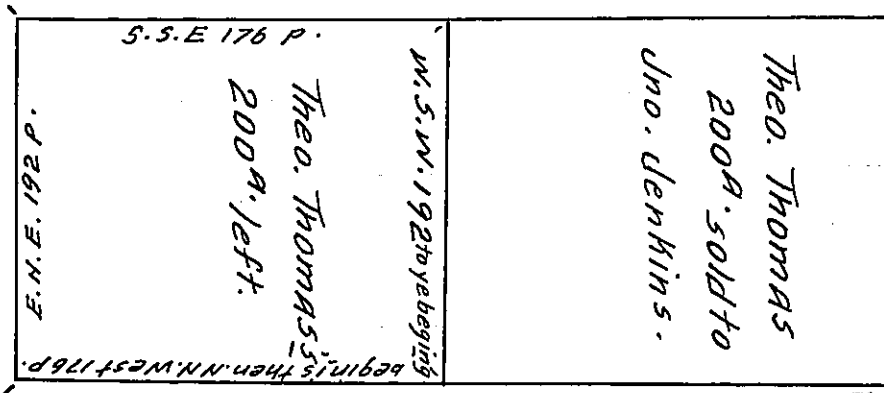 S.S.E 176 P.
E.N.E. 192 P.
Theo. Thomas's
200A. left.
W.S.W. 192 to ye beging
begin is then. NN. West 176 p.
Theo. Thomas
200A. sold to
Jno. Jenkins.